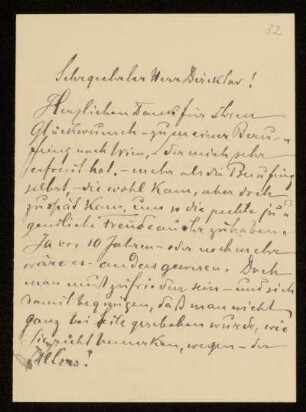 32
Sehr geehrter Herr Direktor!
Herzlichen Dank für Ihren
Glückwunsch – zu meiner Beru-
fung nach Wien, – der mich sehr
erfreut hat, – mehr als die Berufung
selbst, – die wohl kam, aber doch
zu spät kam, um so die rechte ju-
gendliche Freude an ihr zu haben.
Ja vor 10 Jahren – oder noch mehr
wäre es – anders gewesen. Doch
man muß zufrieden sein – und sich
damit begnügen, daß man nicht
ganz bei Seite geschoben wurde, wie
Sie recht bemerken, wegen – der
Alters!